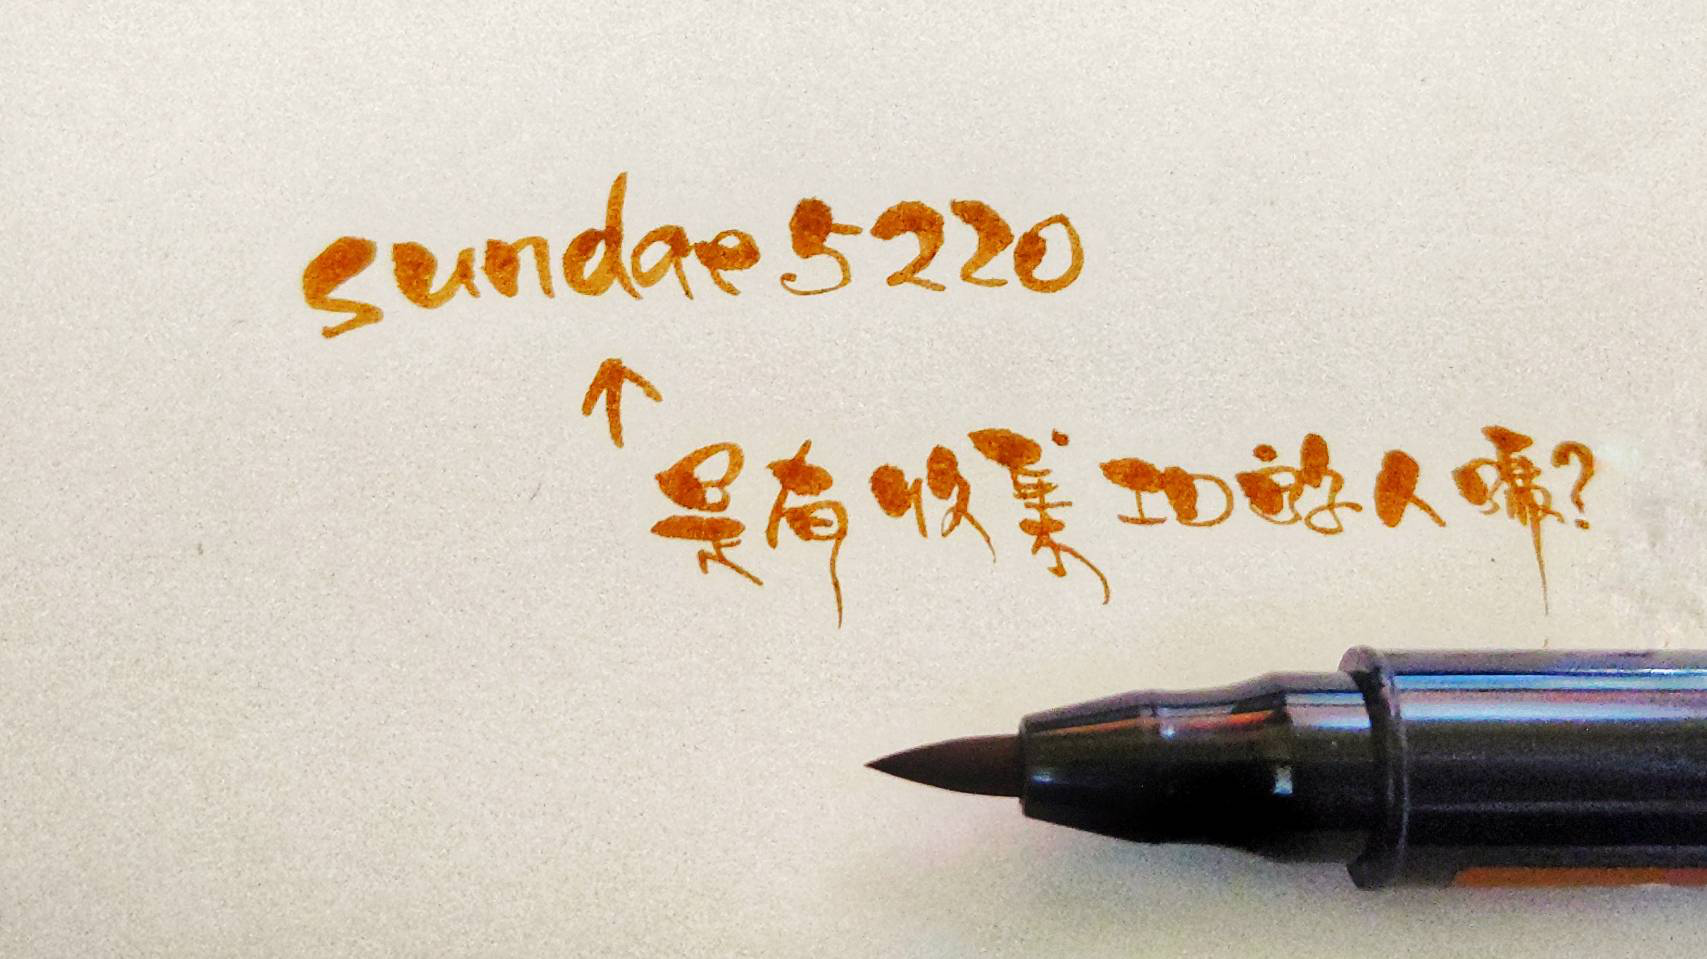 sundae5220
↑
是有收集ID的人嗎?